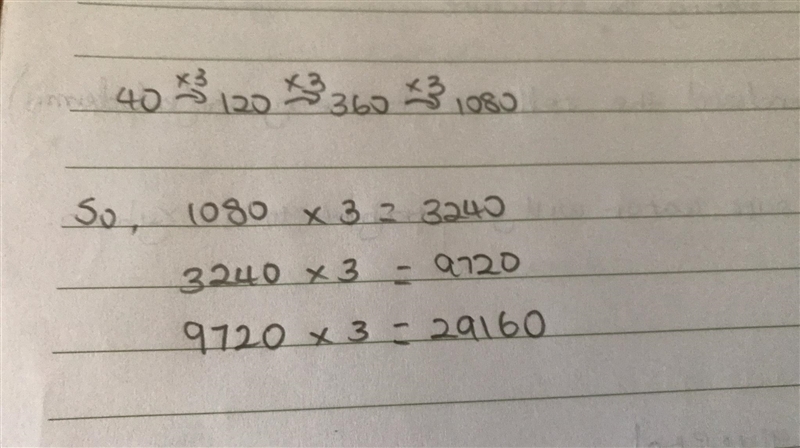 40 ×3→ 120 ×3→ 360 ×3→ 1080
So, 1080 × 3 = 3240
3240 × 3 = 9720
9720 × 3 = 29160